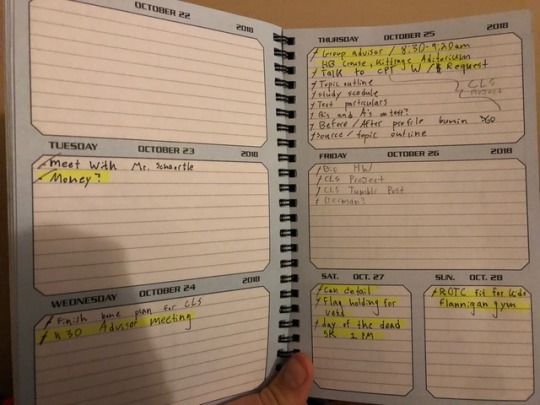 OCTOBER 22
2018
TUESDAY OCTOBER 23
2018
Meet With Mr.
Money?
WEDNESDAY OCTOBER 24
2018
Finish plan for CLS
Advisor meeting
THURSDAY OCTOBER 25
2018
Group advisor / 8:30-9:20am
HB Crouse, Kittredge
Talk to CPT W / Request
Topic outline
CLS
Project
Study
Text particulars
and A's
Before / After profile
Source / topic outline
FRIDAY OCTOBER 26
2018
Bio HW
CLS Project
CLS Tumblr Post
German?
SAT. OCT. 27
Can detail
Flag holding for
day of the dead
5K 1 PM
SUN. OCT. 28
ROTC fit for kids
Flannigan gym